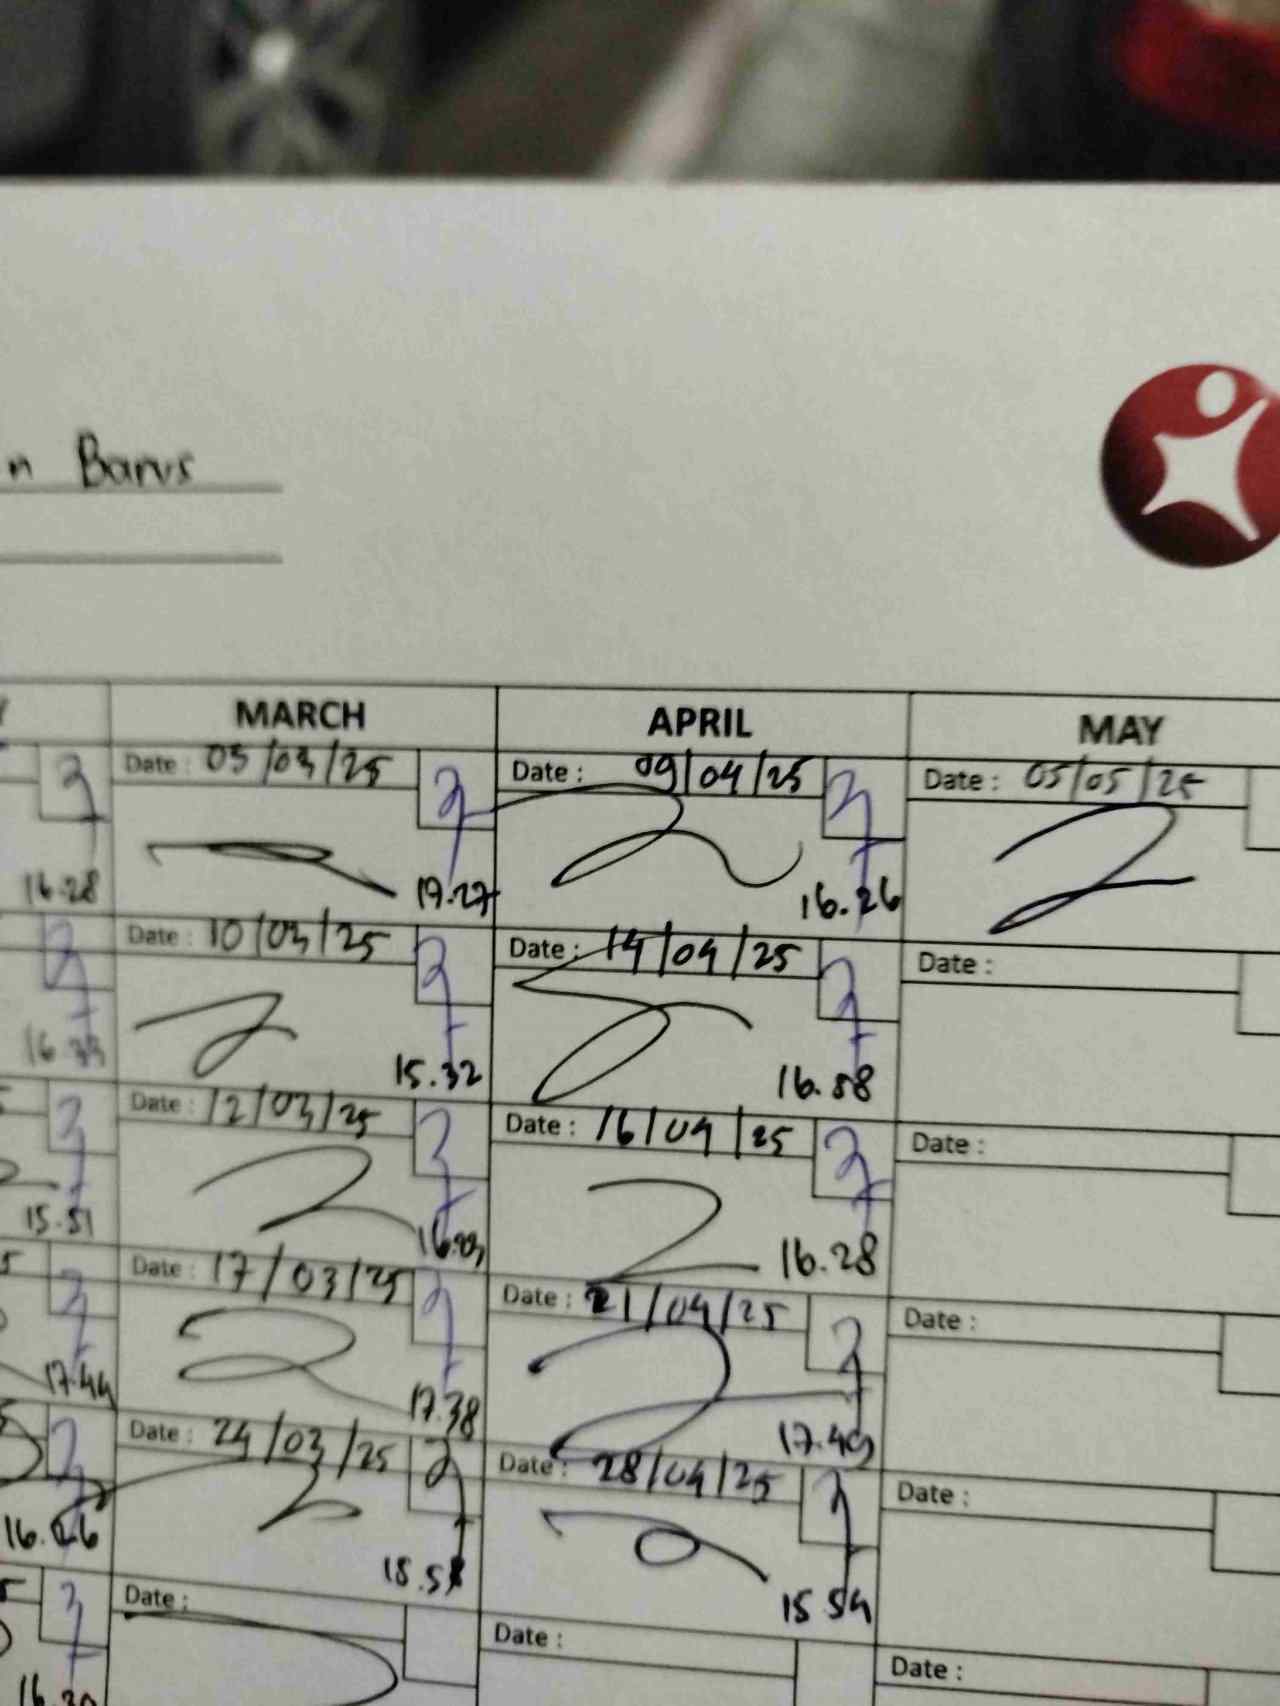 n Barus
MARCH APRIL MAY
Date : 05/03/25 Date : 09/04/25 Date : 05/05/25
16.28 17.27 16.26
Date : 10/03/25 Date : 14/04/25 Date :
16.33 15.32 16.58
Date : 12/03/25 Date : 16/04/25 Date :
15.51 16.03 16.28
Date : 17/03/25 Date : 21/04/25 Date :
17.44 17.38 17.49
Date : 24/03/25 Date : 28/04/25 Date :
16.26 15.54
Date : Date : Date :